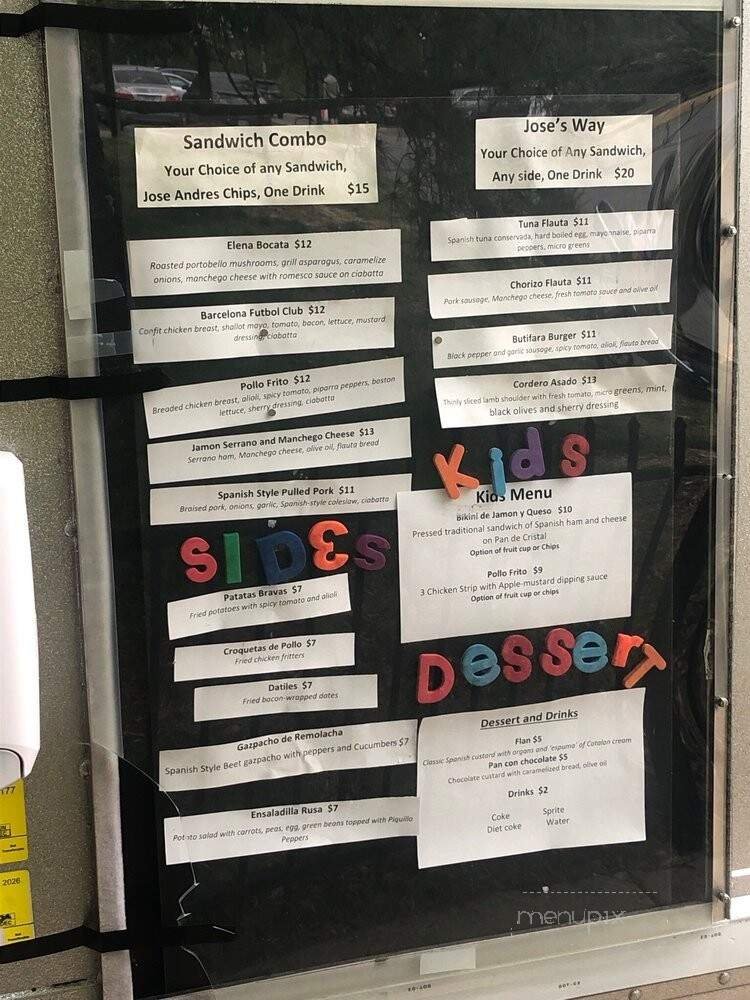 Sandwich Combo
Your Choice of any Sandwich,
Jose Andres Chips, One Drink $15
Elena Bocata $12
Roasted portobello mushrooms, grill asparagus, caramelize
onions, manchego cheese with romesco sauce on ciabatta
Barcelona Futbol Club $12
Confit chicken breast, shallot mayo, tomato, bacon, lettuce, mustard
dressing, ciabatta
Pollo Frito $12
Breaded chicken breast, alioli, spicy tomato, piparra peppers, boston
lettuce, sherry dressing, ciabatta
Jamon Serrano and Manchego Cheese $13
Serrano ham, Manchego cheese, olive oil, flauta bread
Spanish Style Pulled Pork $11
Braised pork, onions, garlic, Spanish-style coleslaw, ciabatta
SIDES
Patatas Bravas $7
Fried potatoes with spicy tomato and alioli
Croquetas de Pollo $7
Fried chicken fritters
Datiles $7
Fried bacon-wrapped dates
Gazpacho de Remolacha
Spanish Style Beet gazpacho with peppers and Cucumbers $7
Ensaladilla Rusa $7
Potato salad with carrots, peas, egg, green beans topped with Piquillo
Peppers
Jose's Way
Your Choice of Any Sandwich,
Any side, One Drink $20
Tuna Flauta $11
Spanish tuna conservada, hard boiled egg, mayonnaise, piparra
peppers, micro greens
Chorizo Flauta $11
Pork sausage, Manchego cheese, fresh tomato sauce and olive oil
Butifara Burger $11
Black pepper and garlic sausage, spicy tomato, alioli, flauta bread
Cordero Asado $13
Thinly sliced lamb shoulder with fresh tomato, micro greens, mint,
black olives and sherry dressing
Kids
Kids Menu
Bikini de Jamon y Queso $10
Pressed traditional sandwich of Spanish ham and cheese
on Pan de Cristal
Option of fruit cup or Chips
Pollo Frito $9
3 Chicken Strip with Apple-mustard dipping sauce
Option of fruit cup or chips
Dessert
Dessert and Drinks
Flan $5
Classic Spanish custard with organs and 'espuma' of Catalan cream
Pan con chocolate $5
Chocolate custard with caramelized bread, olive oil
Drinks $2
Coke Sprite
Diet coke Water
menupix
177
2026